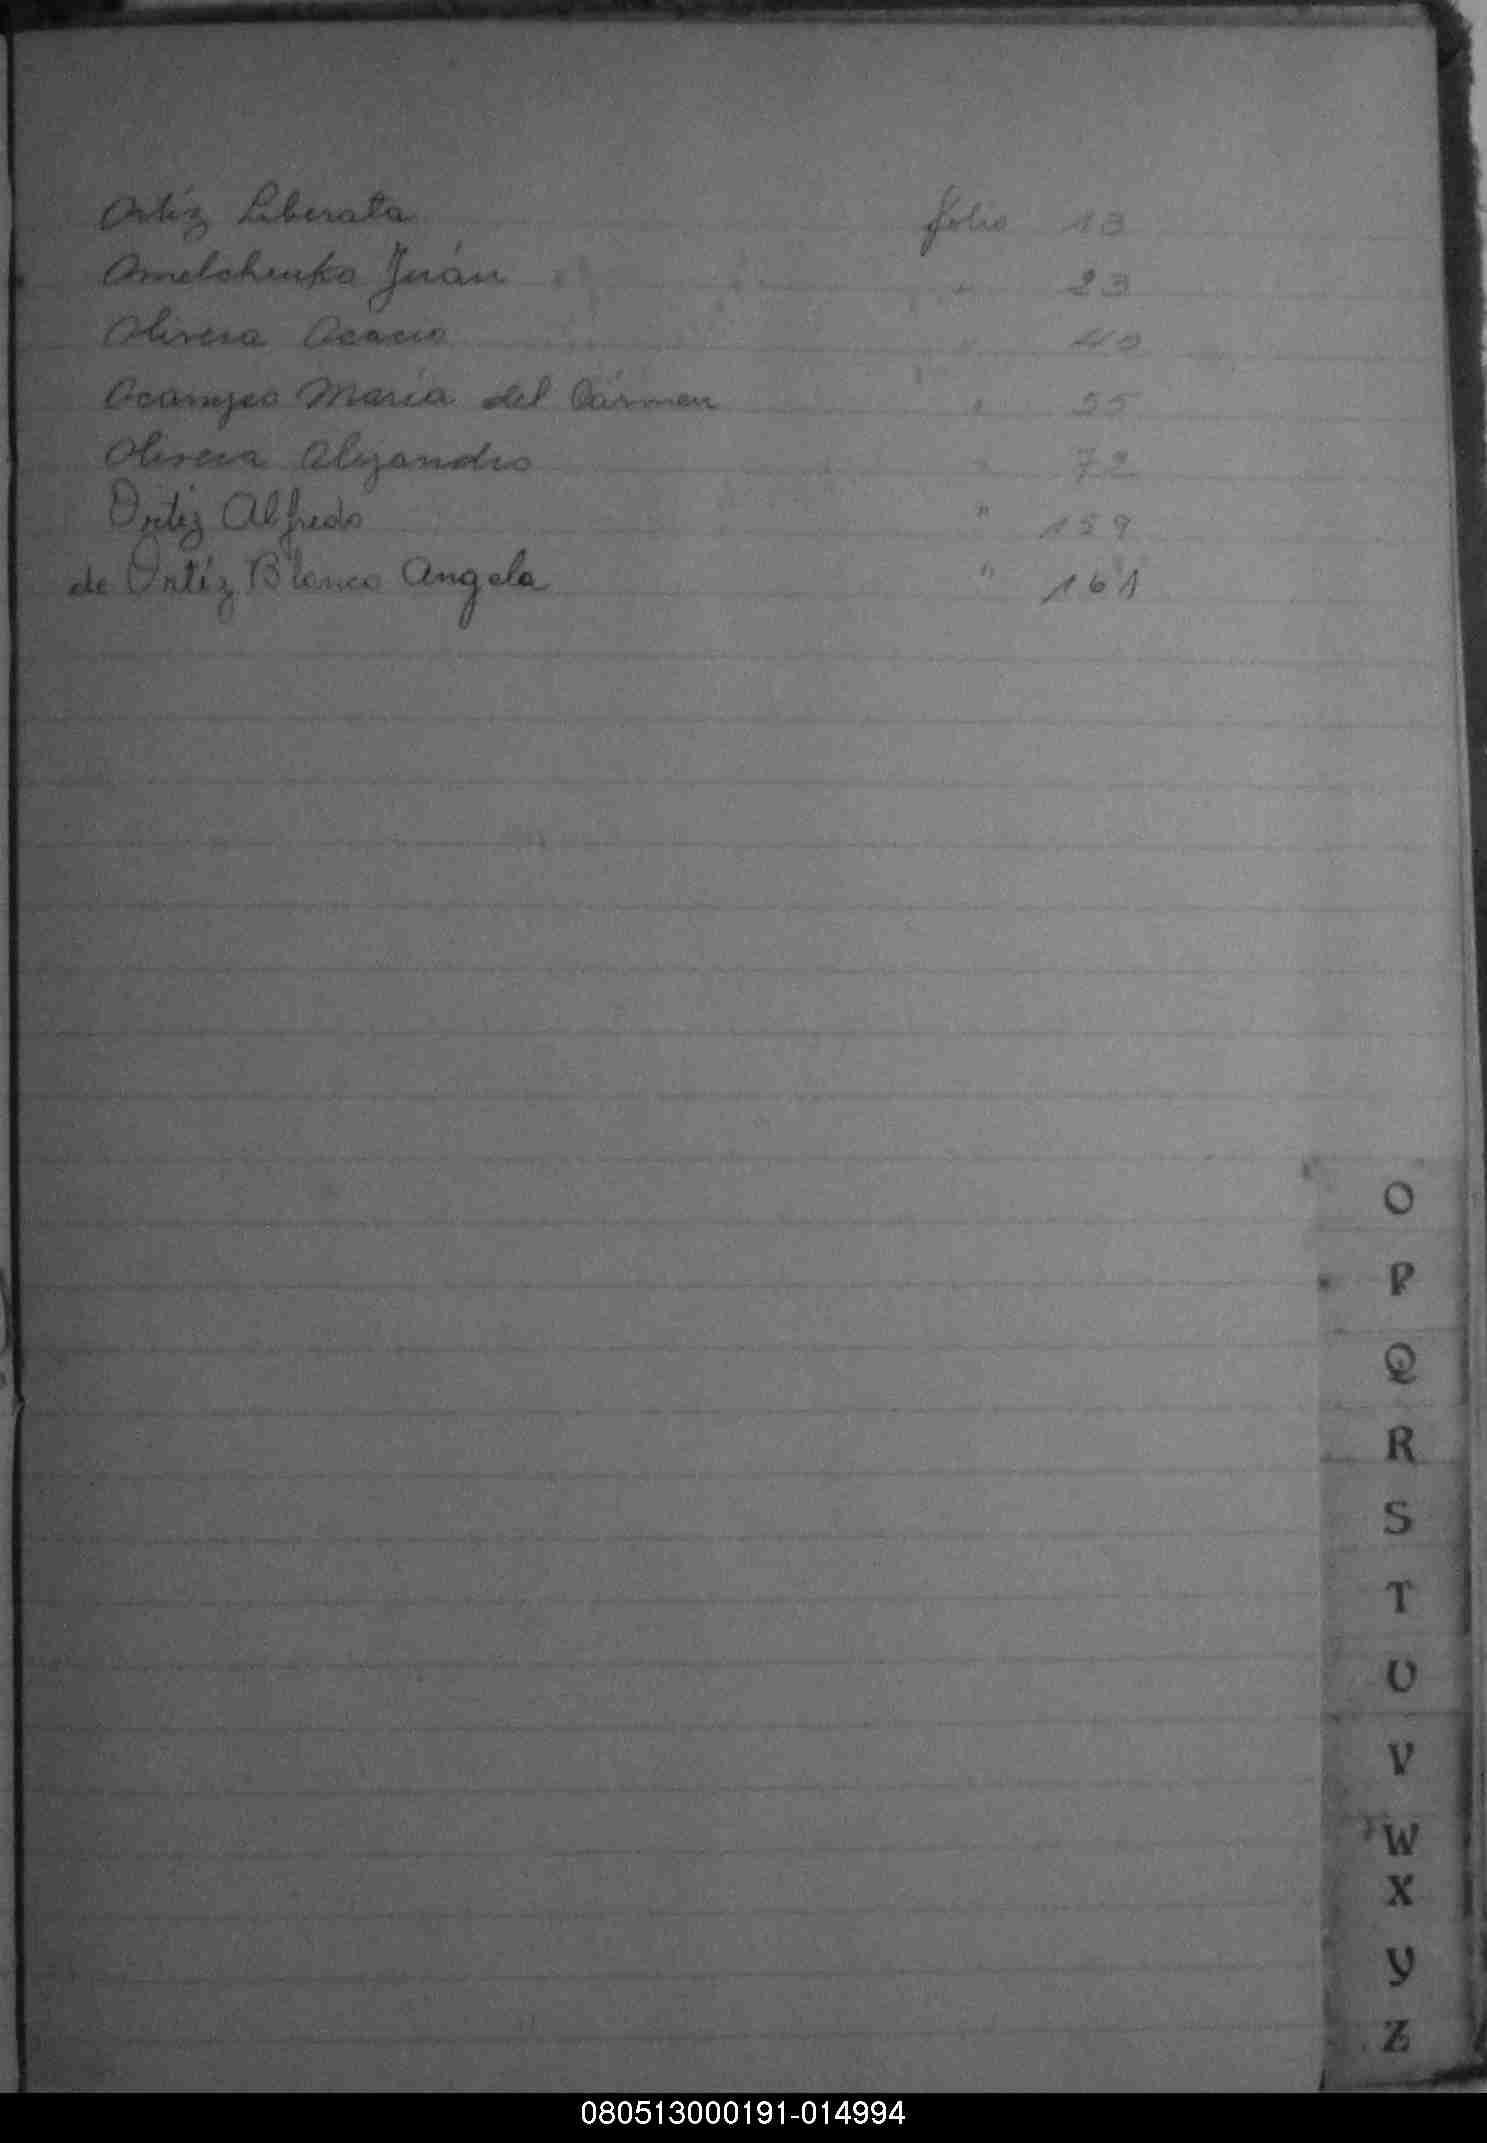 Ortíz Liberata folio 13
Omelchenko Juán " 23
Olivera Acacio " 40
Ocampo María del Cármen " 55
Olivera Alejandro " 72
Ortíz Alfredo " 159
de Ortíz Blanca Angela " 161
O
P
Q
R
S
T
U
V
W
X
Y
Z
080513000191-014994